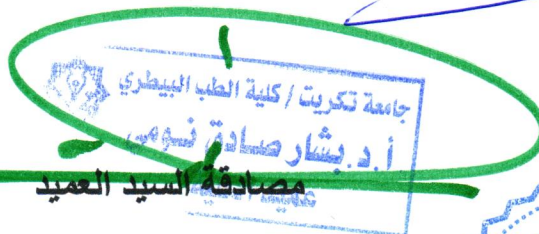 جامعة تكريت / كلية الطب البيطري
أ.د. بشار صادق نومي
عميد الكلية
مصادقة السيد العميد